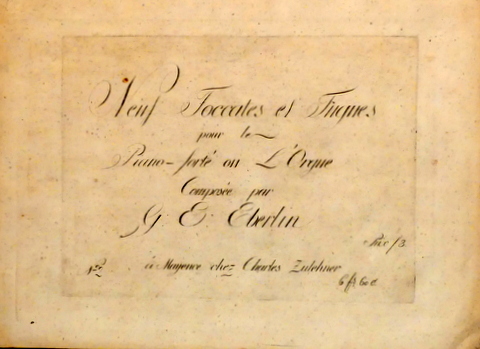 Neuf Toccates et Fugues
pour le
Piano-forté ou L'Orgue
Composée par
G. E. Eberlin
Prix f 3
No. à Mayence chez Charles Zulehner